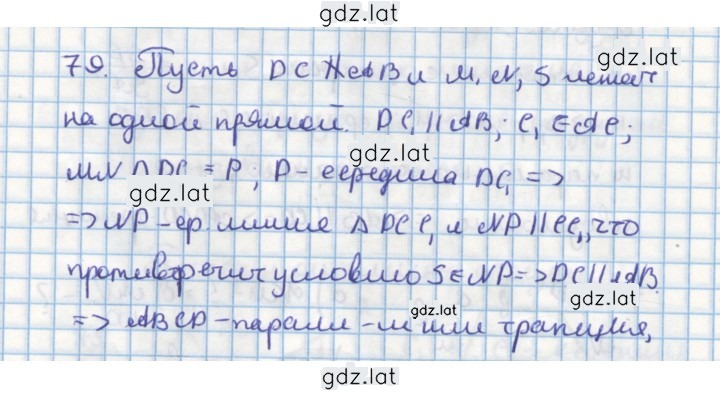 gdz.lat
gdz.lat
79. Пусть DC ∦ AB и M, N, S лежат
на одной прямой. DC₁ || AB; C₁ ∈ AC;
gdz.lat
MN ∩ DC₁ = P; P - середина DC₁ =>
gdz.lat
=> NP - ср. линия Δ DCC₁ и NP || CC₁, что
противоречит условию S ∈ NP => DC || AB.
gdz.lat
gdz.lat
=> ABCD - паралл-м или трапеция,
gdz.lat